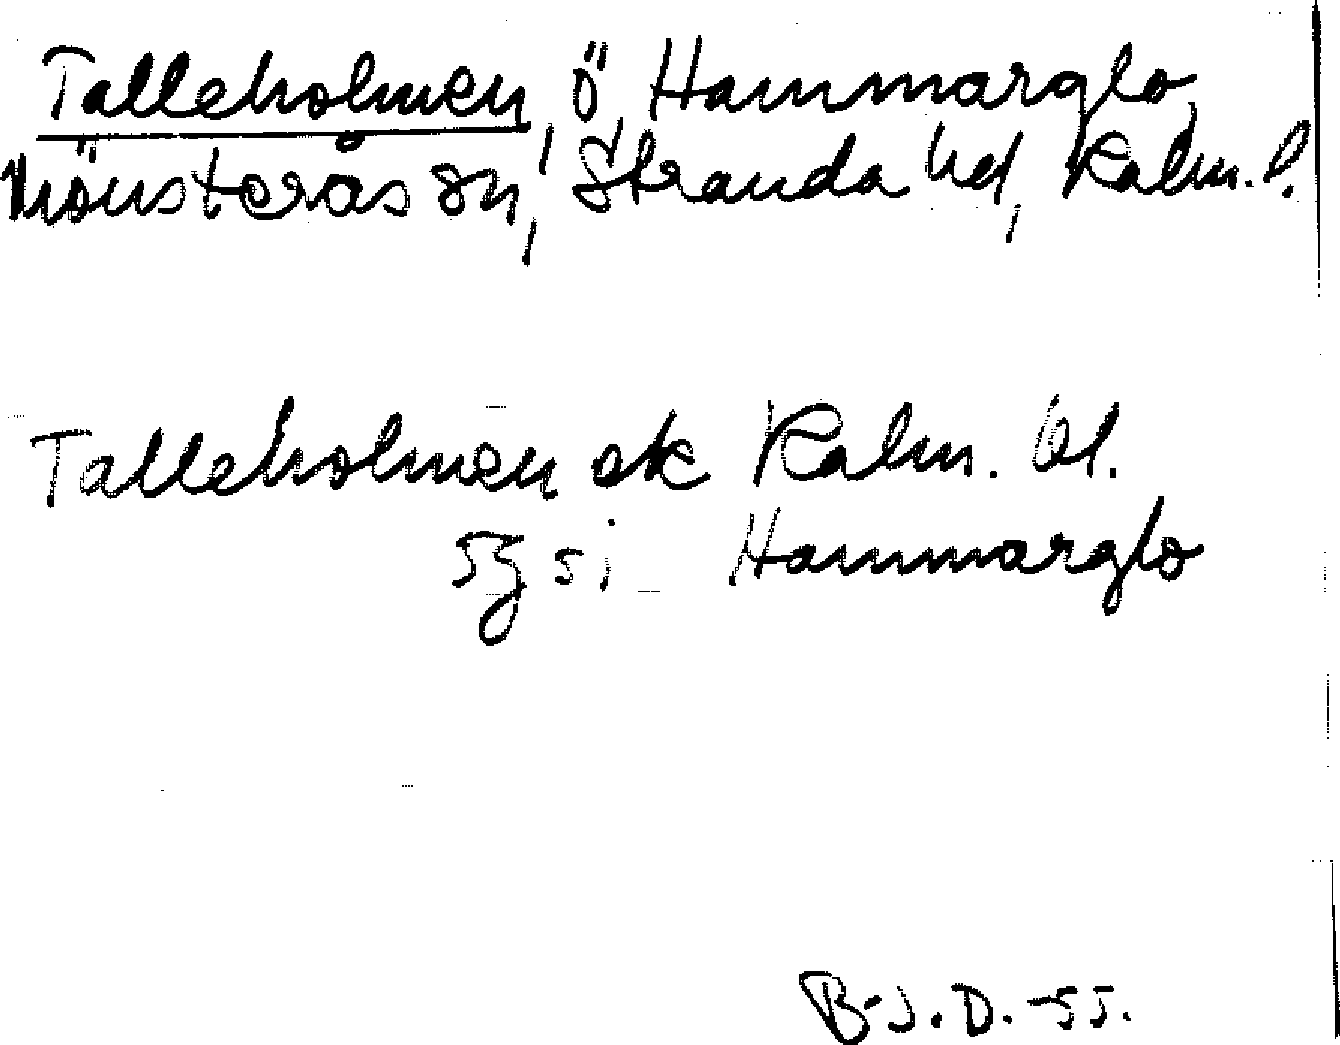 Talleholmen, ö, Hammarglo,
Mönsterås sn, Stranda hd, Kalm. l.
Talleholmen ek Kalm. bl.
5g si Hammarglo
B-J.D. -55.